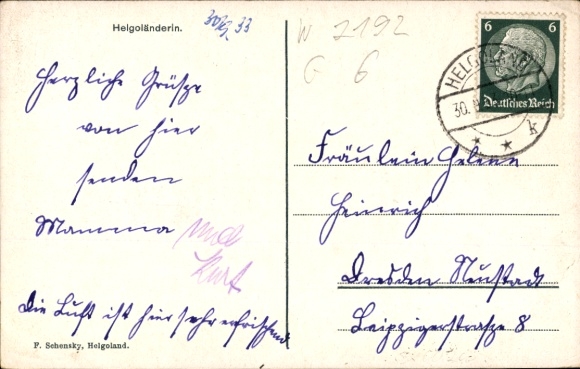 Helgoländerin.
W 2192
G 6
6 6
Deutsches Reich
HELGOLAND
30.
k
Herzliche Grüße
von hier
senden
Mamma und
Kurt
Die Luft ist hier sehr erfrischend
F. Schensky, Helgoland.
Fräulein Helene
Heinrich
Dresden Neustadt
Leipzigerstrasze 8